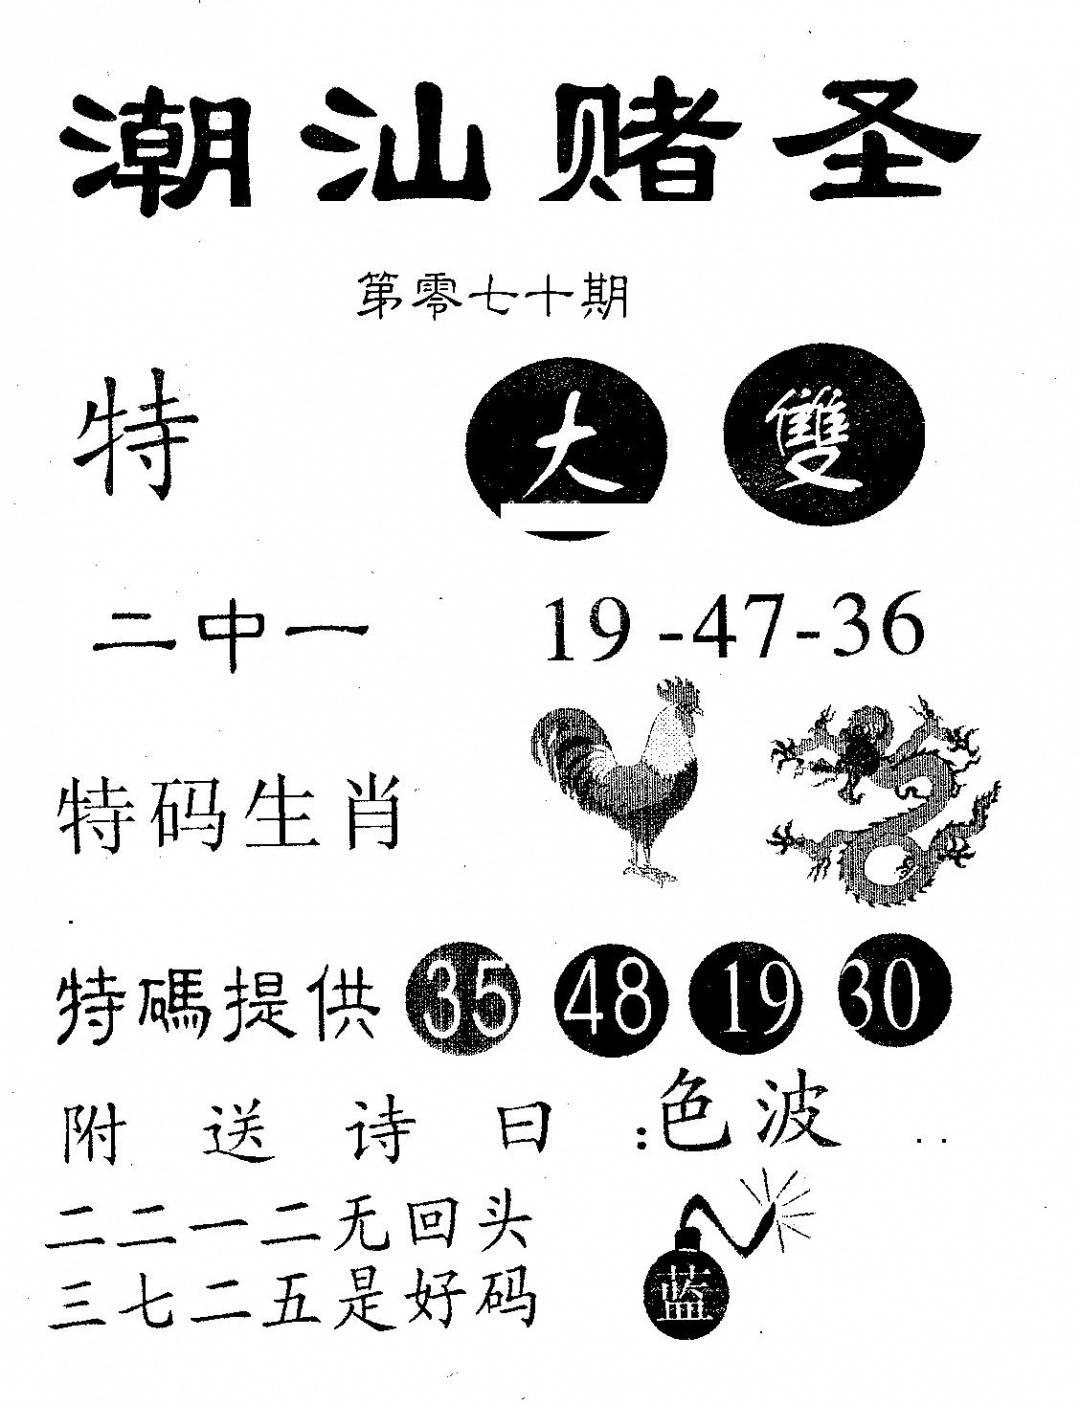 潮汕赌圣
第零七十期
特 大 雙
二中一 19-47-36
特码生肖
特碼提供 35 48 19 30
附送诗曰:色波
二二一二无回头
三七二五是好码
蓝